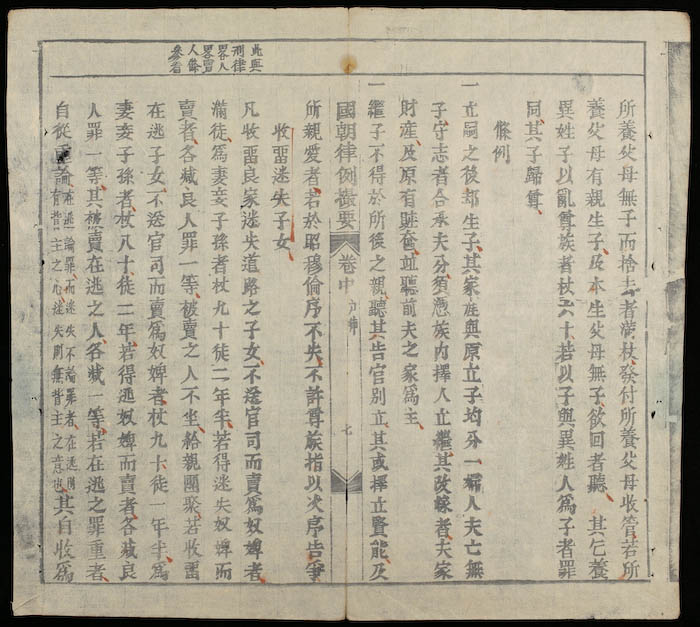 所養父母無子而捨去者滿杖發付所養父母收管若所
養父母有親生子及本生父母無子欲回者聽 其乞養
異姓子以亂尊族者杖六十若以子與異姓人爲子者罪
同其子歸尊
條例
一立嗣之後却生子其家産與原立子均分一婦人夫亡無
子守志者合承夫分須憑族內擇人立繼其改嫁者夫家
財産及原有賍奩並聽前夫之家爲主
一繼子不得於所後之親聽其告官別立其或擇立賢能及
國朝律例撮要 卷中 户律 七
此與
刑律
畧人
畧賣
人條
參看
所親愛者若於昭穆倫序不失不許尊族指以次序告爭
收留迷失子女
凡收留良家迷失道路之子女不送官司而賣爲奴婢者
滿徒爲妻妾子孫者杖九十徒二年半若得迷失奴婢而
賣者各減良人罪一等被賣之人不坐給親團聚若收留
在逃子女不送官司而賣爲奴婢者杖九十徒一年半爲
妻妾子孫者杖八十徒二年若得逃奴婢而賣者各減良
人罪一等其被賣在逃之人各減一等若在逃之罪重者
自從重論在逃論罪而迷失不論罪者在逃則有背主之心迷失則無背主之意也其自收爲